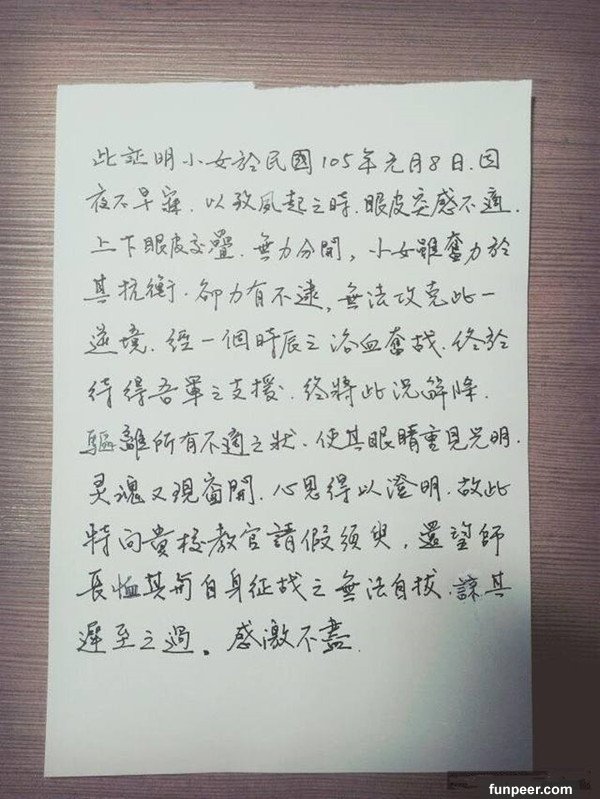 此証明小女於民國105年元月8日.因
夜不早寐.以致風起之時.眼皮突感不適.
上下眼皮交疊.無力分開，小女雖奮力於
其抗衡.卻力有不逮，無法攻克此一
逆境.經一個時辰之浴血奮战.終於
待得吾軍之支援.終將此況解除.
驅離所有不適之狀.使其眼睛重見光明.
灵魂又現窗開.心思得以澄明.故此
特向貴校教官請假須臾，還望師
長恤其與自身征战之無法自拔.諒其
遲至之過。感激不盡.
funpeer.com